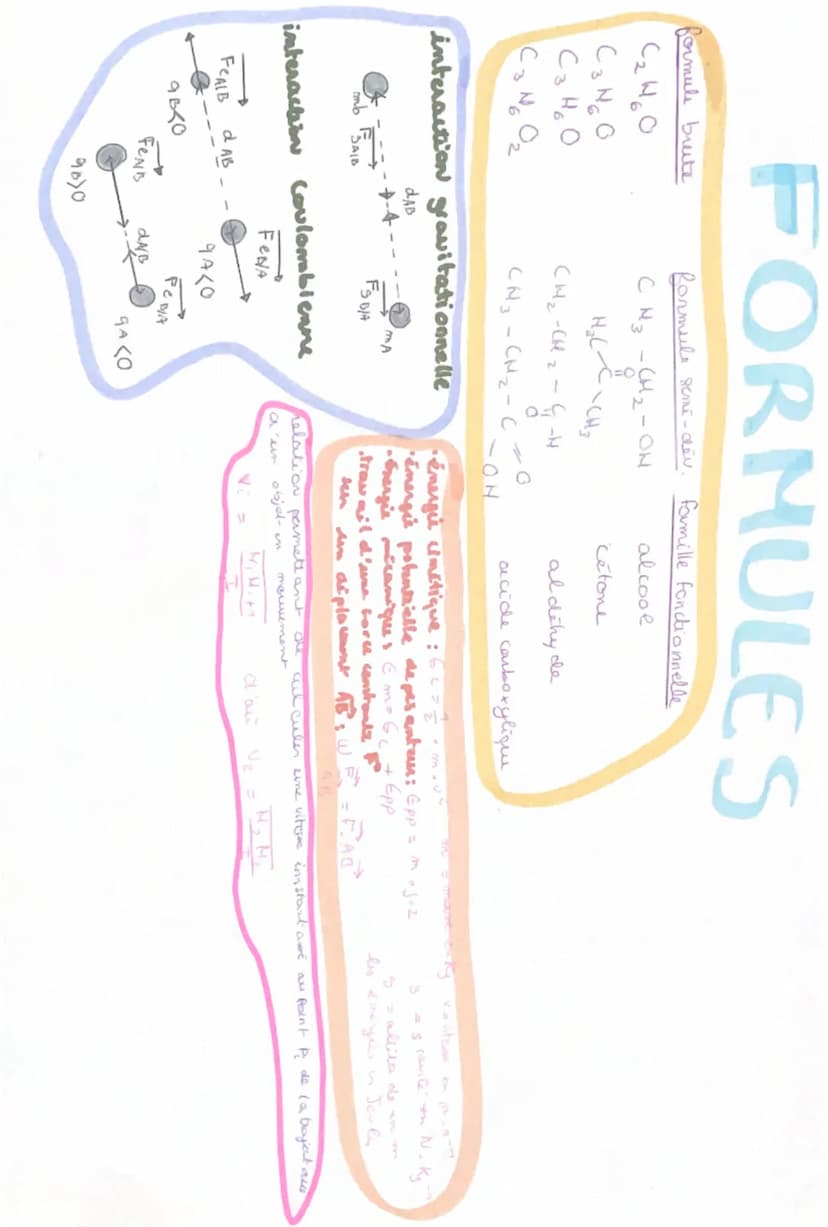 FORMULES
formule brute formule semi-dév. famille fonctionnelle
C2H6O CH3-CH2-OH alcool
C3H6O H3C-C-CH3 cétone
O
C3H6O CH2-CH2-C-H aldéhyde
O
C3H6O2 CH3-CH2-C=O acide carboxylique
-OH
interaction gravitationnelle
dAB
mb FgA/B FgB/A mA
interaction coulombienne
FeA/B dAB FeB/A
qB<0 qA<0
FeA/B dA/B FeB/A
qB>0 qA<0
énergie cinétique : Ec = 1/2 . m . v² m = masse en kg vitesse en m.s⁻¹
énergie potentielle de pesanteur : Epp = m.g.z g = gravité en N.kg⁻¹
énergie mécanique : Em = Ec + Epp z = altitude en m
travail d'une force constante F les énergies en Joules
sur un déplacement AB : W F = F.AB
relation permettant de calculer une vitesse instantanée au point Pi de la trajectoire
d'un objet en mouvement
vi = d'où v2 =